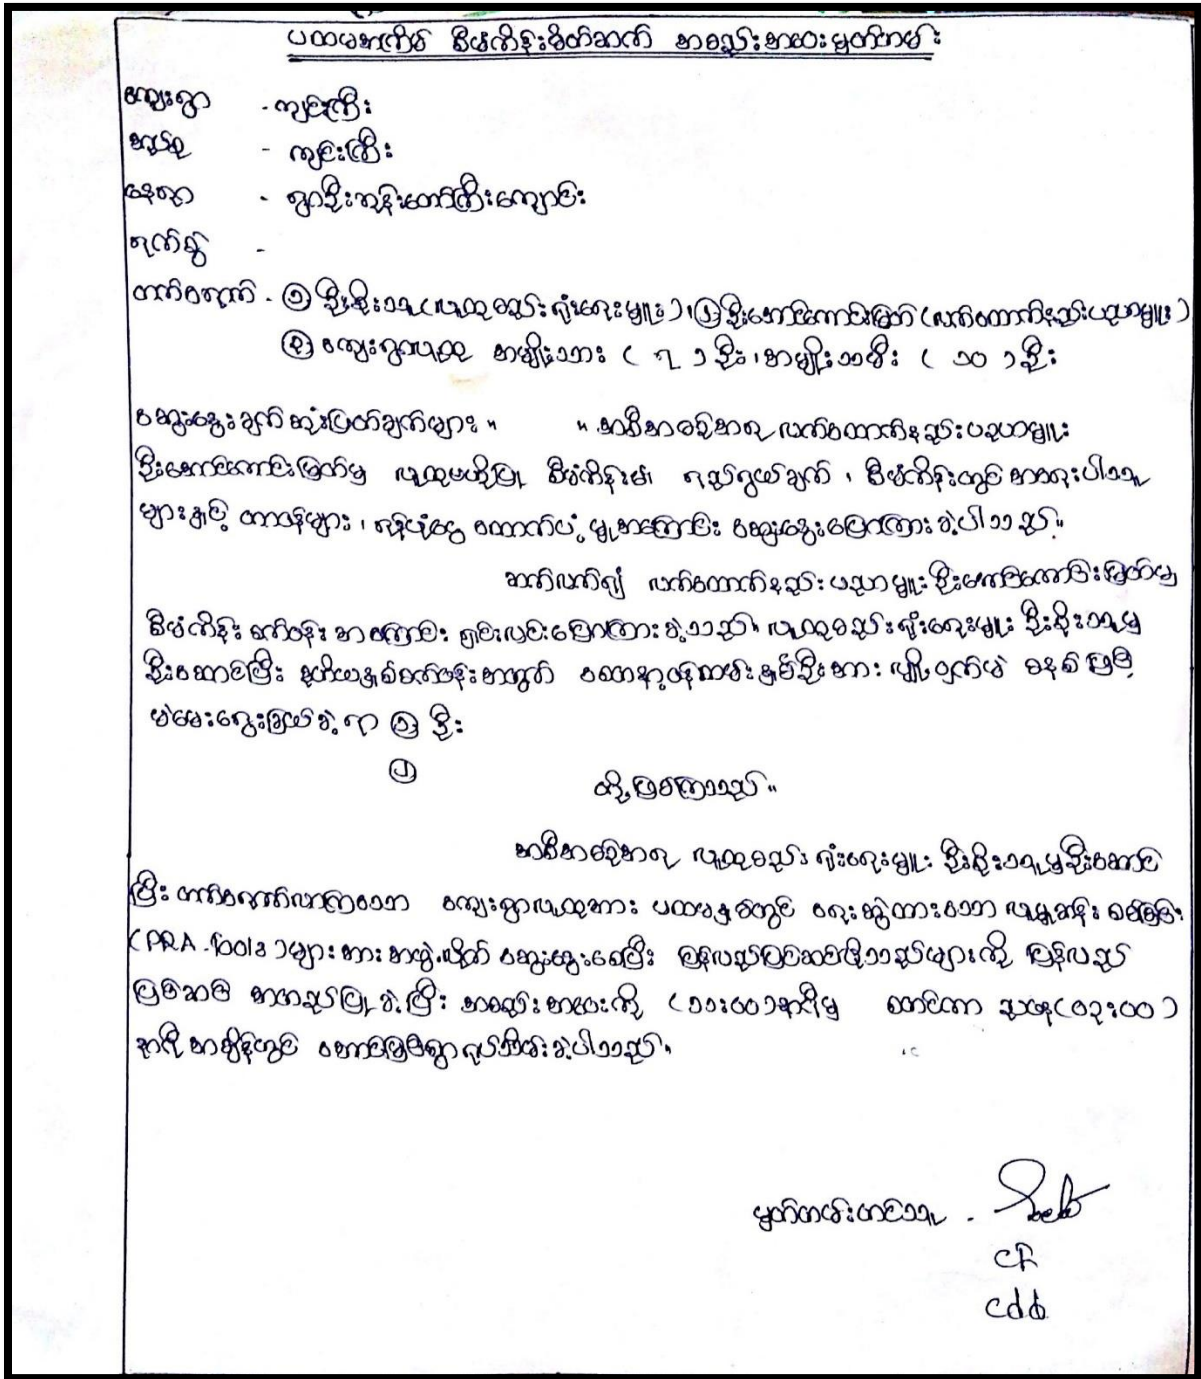 ပထမအကြိမ် စီမံကိန်းမိတ်ဆက် အစည်းအဝေးမှတ်တမ်း
ကျေးရွာ - ကျင်းကြီး
အုပ်စု - ကျင်းကြီး
နေရာ - ရွာဦးဘုန်းတော်ကြီးကျောင်း
ရက်စွဲ -
တက်ရောက် - ၁ ဦးစိုးသူ (လူထုစည်းရုံးရေးမှူး) ၊ ၂ ဦးအောင်ကောင်းမြတ် (လက်ထောက်နည်းပညာမှူး)
၃ ကျေးရွာလူထု အမျိုးသား ( ၇ ) ဦး ၊ အမျိုးသမီး ( ၁၀ ) ဦး
ဆွေးနွေးချက် ဆုံးဖြတ်ချက်များ ။ ။ အစီအစဉ်အရ လက်ထောက်နည်းပညာမှူး
ဦးအောင်ကောင်းမြတ်မှ လူထုဗဟိုပြု စီမံကိန်း၏ ရည်ရွယ်ချက် ၊ စီမံကိန်းတွင် အရေးပါသူ
များနှင့် တာဝန်များ ၊ ရန်ပုံငွေ ထောက်ပံ့မှုအကြောင်း ဆွေးနွေးပြောကြားခဲ့ပါသည်။
ဆက်လက်၍ လက်ထောက်နည်းပညာမှူး ဦးအောင်ကောင်းမြတ်မှ
စီမံကိန်း စက်ဝန်း အကြောင်း ရှင်းလင်းပြောကြားခဲ့သည်။ လူထုစည်းရုံးရေးမှူး ဦးစိုးသူမှ
ဦးဆောင်ပြီး ဒုတိယနှစ်စက်ဝန်းအတွက် စေတနာ့ဝန်ထမ်းနှစ်ဦးအား လျှို့ဝှက်မဲ စနစ်ဖြင့်
မဲပေးရွေးချယ်ခဲ့ရာ ၁ ဦး
၂
တို့ဖြစ်ကြသည်။
အစီအစဉ်အရ လူထုစည်းရုံးရေးမှူး ဦးစိုးသူမှဦးဆောင်
ပြီး တက်ရောက်လာကြသော ကျေးရွာလူထုအား ပထမနှစ်တွင် ရေးဆွဲထားသော လူမှုဆန်းစစ်ခြင်း
(PRA-Tools) များအား အဖွဲ့လိုက် ဆွေးနွေးစေပြီး ပြန်လည်ပြင်ဆင်ဖို့သည်များကို ပြန်လည်
ပြင်ဆင် အတည်ပြုခဲ့ပြီး အစည်းအဝေးကို (၁၁:၀၀) နာရီမှ စတင်ကာ (၀၃:၀၀)
နာရီ အချိန်တွင် အောင်မြင်စွာ ရုပ်သိမ်းခဲ့ပါသည်။
မှတ်တမ်းတင်သူ -
CF
CDD